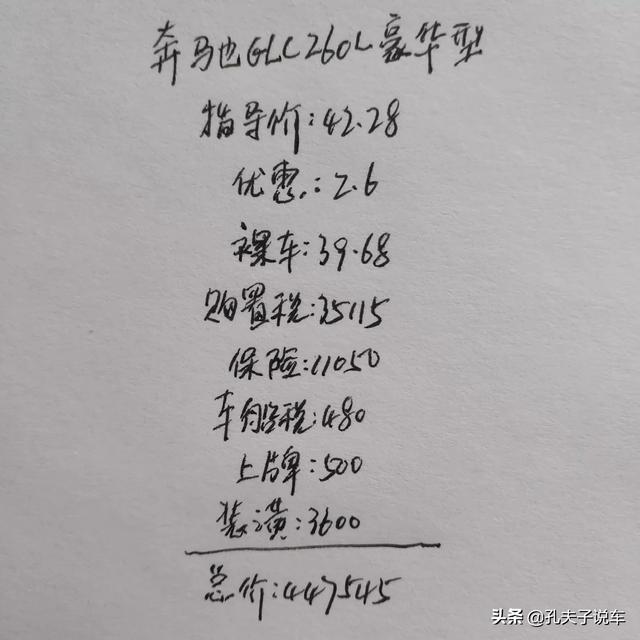 奔驰GLC260L豪华型
指导价:42.28
优惠:2.6
裸车:39.68
购置税:35115
保险:11050
车船税:480
上牌:500
装潢:3600
总价:447545
头条 @孔夫子说车